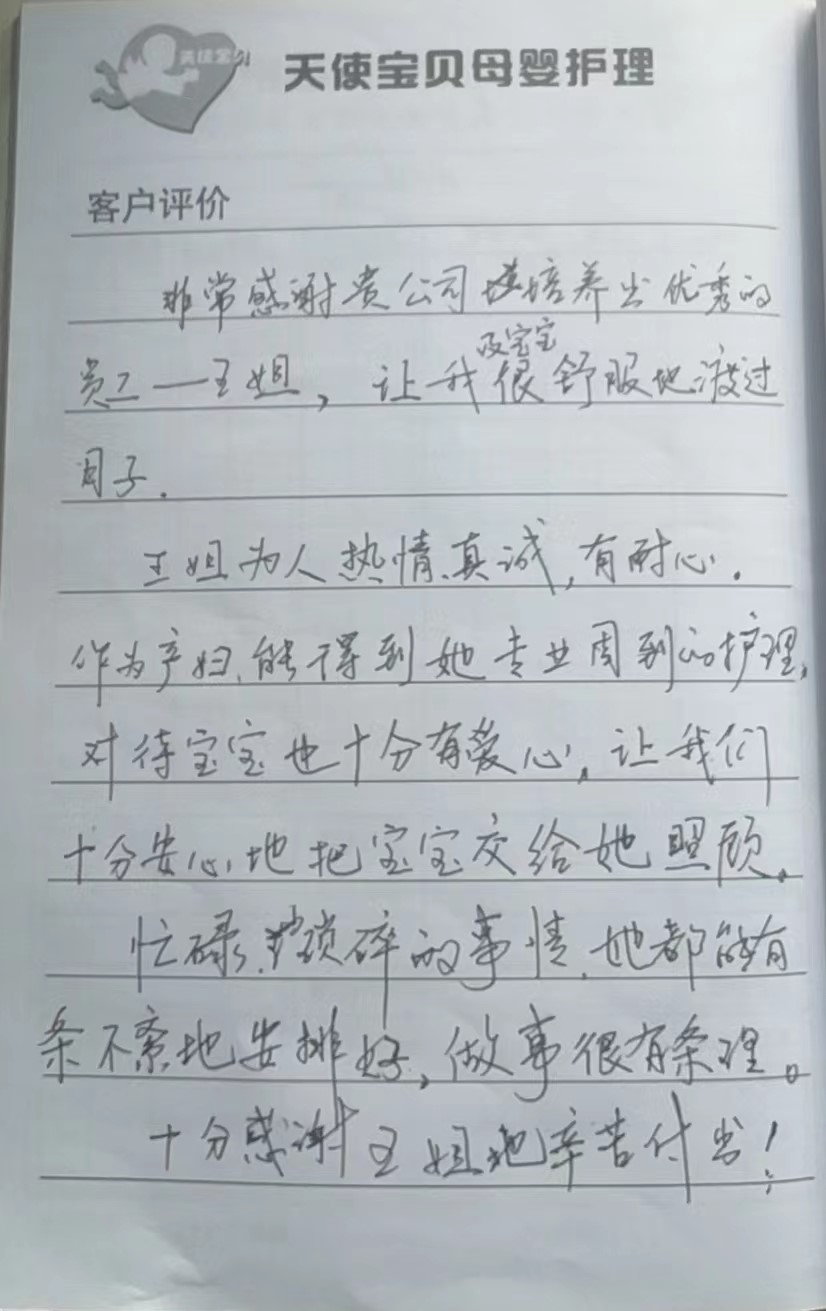 天使宝
天使宝贝母婴护理
客户评价
非常感谢贵公司培养出优秀的
及宝宝
员工——王姐，让我很舒服地渡过
月子.
王姐为人热情、真诚,有耐心.
作为产妇、能得到她专业周到的护理,
对待宝宝也十分有爱心,让我们
十分安心地把宝宝交给她照顾.
忙碌、琐碎的事情、她都能有
条不紊地安排好,做事很有条理。
十分感谢王姐地辛苦付出!